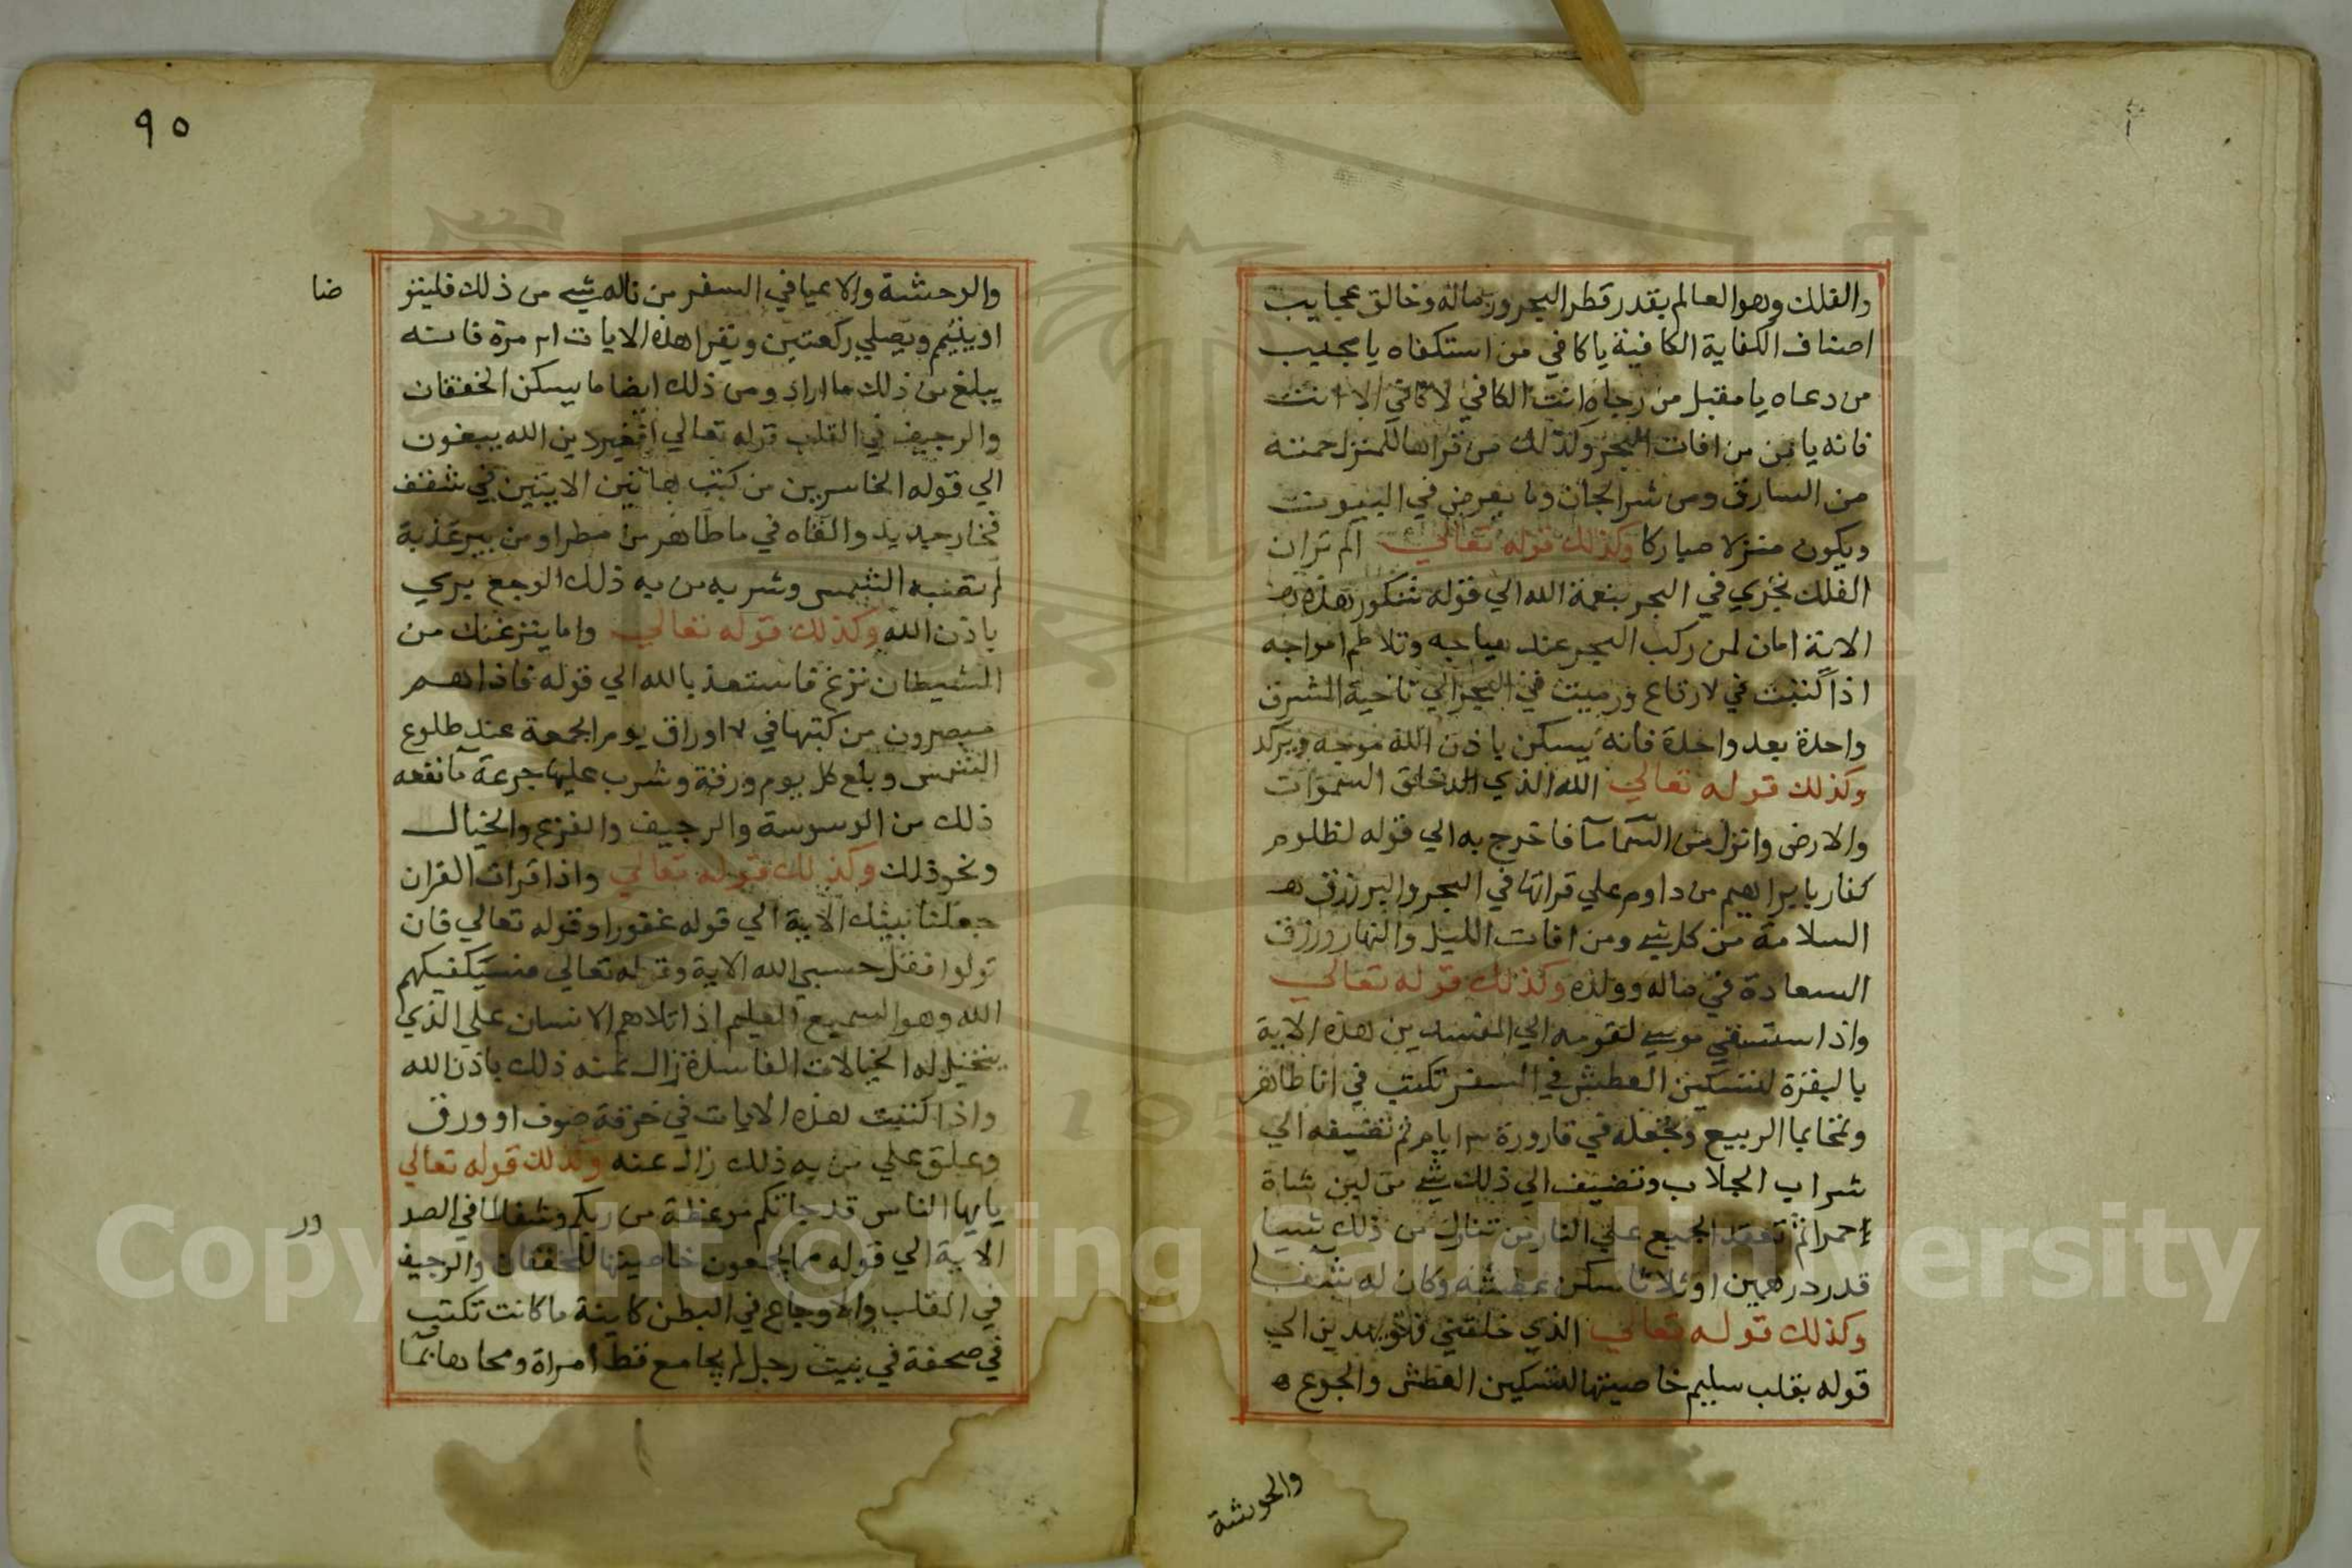 والفلك وهو العالم بقدر قطر البحر ورماله وخالق عجايب
اصناف الكفاية الكافية يا كافي من استكفاه يا مجيب
من دعاه يا مقبل من رجاه انت الكافي لا كافي الا انت
فانه يامن من افات البحر وكذلك من قراها لمنزل حمته
من السارق ومن شر الجان وما يعرض في البيوت
ويكون منزلا مباركا وكذلك قوله تعالي الم تر ان
الفلك تجري في البحر بنعمة الله الي قوله شكور هذه
الاية امان لمن ركب البحر عند هياجه وتلاطم امواجه
اذا كتبت في رقاع ورميت في البحر الي ناحية الشرق
واحدة بعد واحدة فانه يسكن باذن الله موجه ويركد
وكذلك قوله تعالي الله الذي خلق السموات
والارض وانزل من السما ما فاخرج به الي قوله لظلوم
كفار بابراهيم من داوم علي قراتها في البحر والبر رزق
السلامة من كل شي ومن افات الليل والنهار ورزق
السعادة في ماله وولده وكذلك قوله تعالي
واذ استسقي موسي لقومه الي المفسدين هذه الاية
بالبقرة لتسكين العطش في السفر تكتب في انا طاهر
وتمحا بما الربيع وتجعله في قارورة ٣ ايام ثم تضيفه الي
شراب الجلاب وتضيف الي ذلك شي من لبن شاة
حمرا ثم تعقد الجميع علي النار من تناول من ذلك شيا
قدر درهمين او ثلاثا سكن عطشه وكان له شفا
وكذلك قوله تعالي الذي خلقني فهو يهدين الي
قوله بقلب سليم خاصيتها لتسكين العطش والجوع
والوحشة
٩٥
والوحشة والاعيا في السفر من ناله شي من ذلك فليتو
ضا
او يتيمم ويصلي ركعتين ويقرا هذه الايات مرة فانه
يبلغ من ذلك ما اراد ومن ذلك ايضا ما يسكن الخفقان
والرجيف في القلب قوله تعالي افغير دين الله يبغون
الي قوله الخاسرين من كتب هاتين الايتين في شقف
فخار جديد والقاه في ما طاهر من مطر او من بير عذبة
لم تصبه الشمس وشربه من به ذلك الوجع بري
باذن الله وكذلك قوله تعالي واما ينزغنك من
الشيطان نزغ فاستعذ بالله الي قوله فاذا هم
مبصرون من كتبها في ٧ اوراق يوم الجمعة عند طلوع
الشمس وبلع كل يوم ورقة وشرب عليها جرعة ما نفعه
ذلك من الوسوسة والرجيف والفزع والخيال
ونحو ذلك وكذلك قوله تعالي واذا قرات القران
جعلنا بينك الاية الي قوله غفورا وقوله تعالي فان
تولوا فقل حسبي الله الاية وقوله تعالي فسيكفيكهم
الله وهو السميع العليم اذا تلاهم الانسان علي الذي
يتخيل له الخيالات الفاسدة زال عنه ذلك باذن الله
واذا كتبت هذه الايات في خرقة صوف او ورق
وعلق علي من به ذلك زال عنه وكذلك قوله تعالي
يايها الناس قد جاتكم موعظة من ربكم وشفا لما في الصد
ور
الاية الي قوله مما يجمعون خاصيتها للخفقان والرجيف
في القلب والاوجاع في البطن كاينة ما كانت تكتب
في صحفة في بيت رجل لم يجامع قط امراة ومحاها بما
Copyright © King Saud University